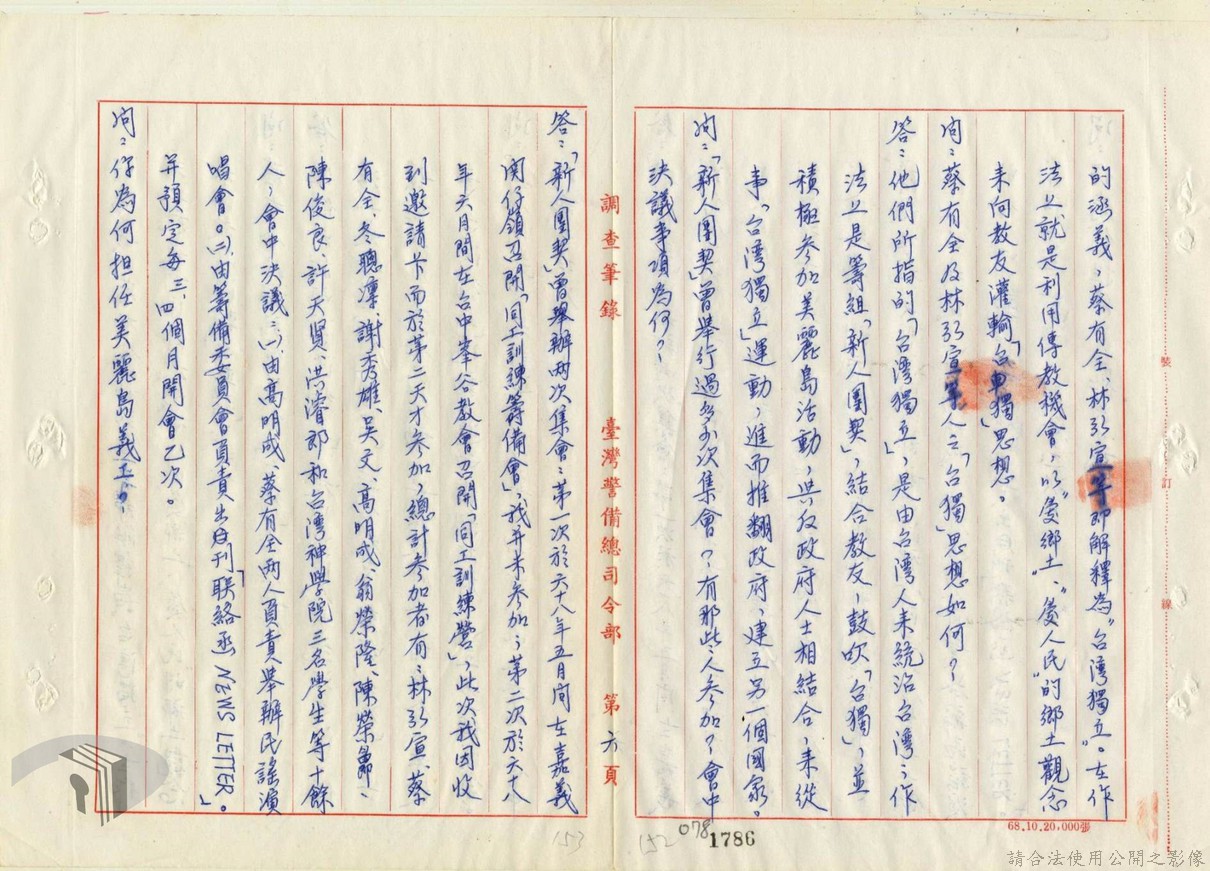 的涵義，蔡有全、林弘宣等即解釋為“台湾獨立”。在作
法上就是利用傳教機會，以“愛鄉土”、“愛人民”的鄉土觀念
來向教友灌輸「台獨」思想。
問：蔡有全及林弘宣等人之「台獨」思想如何？
答：他們所指的「台湾獨立」，是由台湾人來統治台湾；作
法上是籌組「新人團契」，結合教友，鼓吹「台獨」，並
積極參加美麗島活動，與反政府人士相結合，来從
事「台湾獨立」運動，進而推翻政府，建立另一個國家。
問：「新人團契」曾舉行過多少次集會？有那些人參加？會中
決議事項為何？
調查筆錄 臺灣警備總司令部 第六頁
答：「新人團契」曾舉辦两次集會：第一次於六十八年五月間在嘉義
関仔嶺召開「同工訓練籌備會」，我并未參加；第二次於六十八
年六月間在台中峯谷教會召開「同工訓練營」，此次我因收
到邀請卡而於第二天才參加，總計參加者有：林弘宣、蔡
有全、冬聰凛、謝秀雄、吳文、高明成、翁榮隆、陳榮昴、
陳俊良、許天賢、洪濬郎和台湾神學院三名學生等十餘
人，會中決議：㈠、由高明成、蔡有全两人負責舉辦民謠演
唱會。㈡、由籌備委員會負責出刊「联絡函 NEWS LETTER。」
并預定每三、四個月開會乙次。
問：你為何担任美麗島義工？
裝 訂 線
68.10.20,000張
153
152
078
1786
請合法使用公開之影像